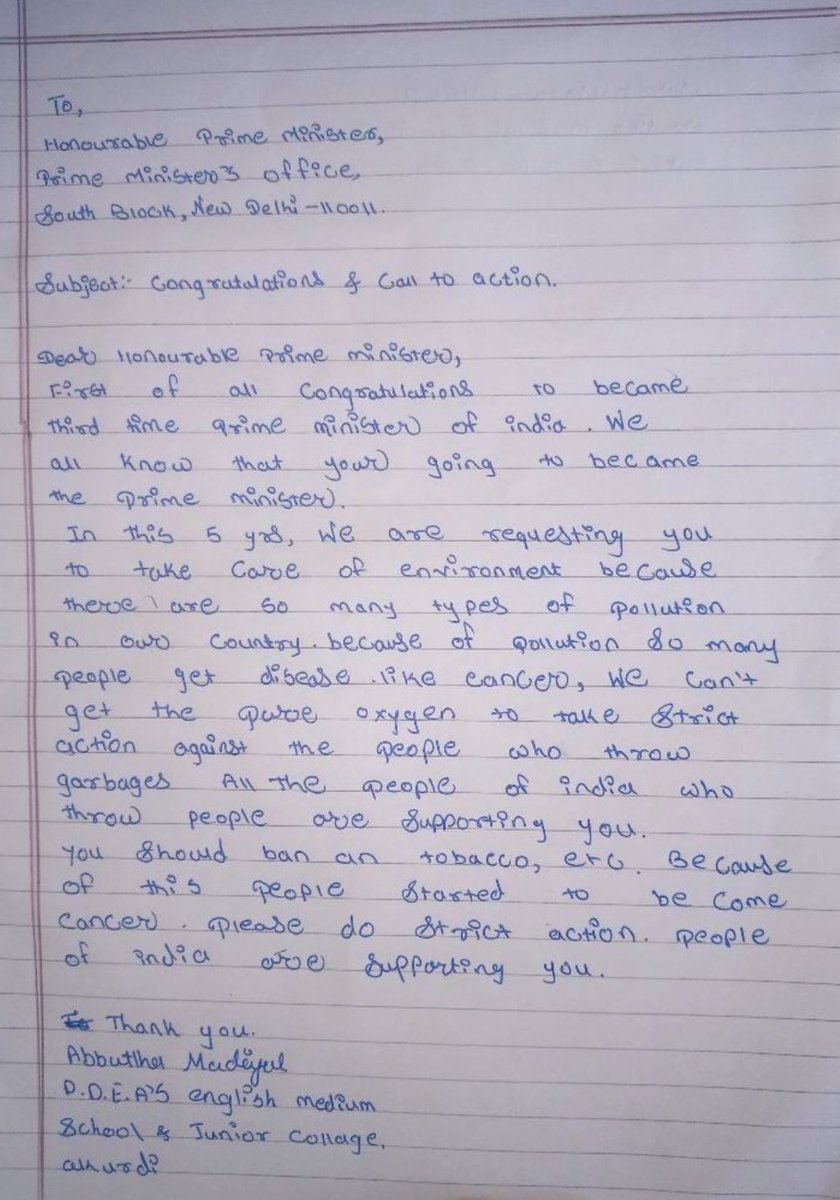 To,
Honourable Prime Minister,
Prime Minister's office,
South Block, New Delhi -110011.
Subject:- Congratulations & Call to action.
Dear Honourable Prime minister,
First of all Congratulations to became
third time prime minister of india. We
all know that your going to became
the prime minister.
In this 5 yrs, We are requesting you
to take Care of environment because
there are so many types of pollution
in our Country. because of pollution so many
people get disease .like cancer, We Can't
get the pure oxygen to take Strict
action against the people who throw
garbages All the people of india who
throw people are Supporting you.
you Should ban an tobacco, etc. Because
of this people Started to be Come
Cancer. please do Strict action. people
of india are Supporting you.
Thank you.
D.D.E.A'S english medium
School & Junior Collage,
akurdi